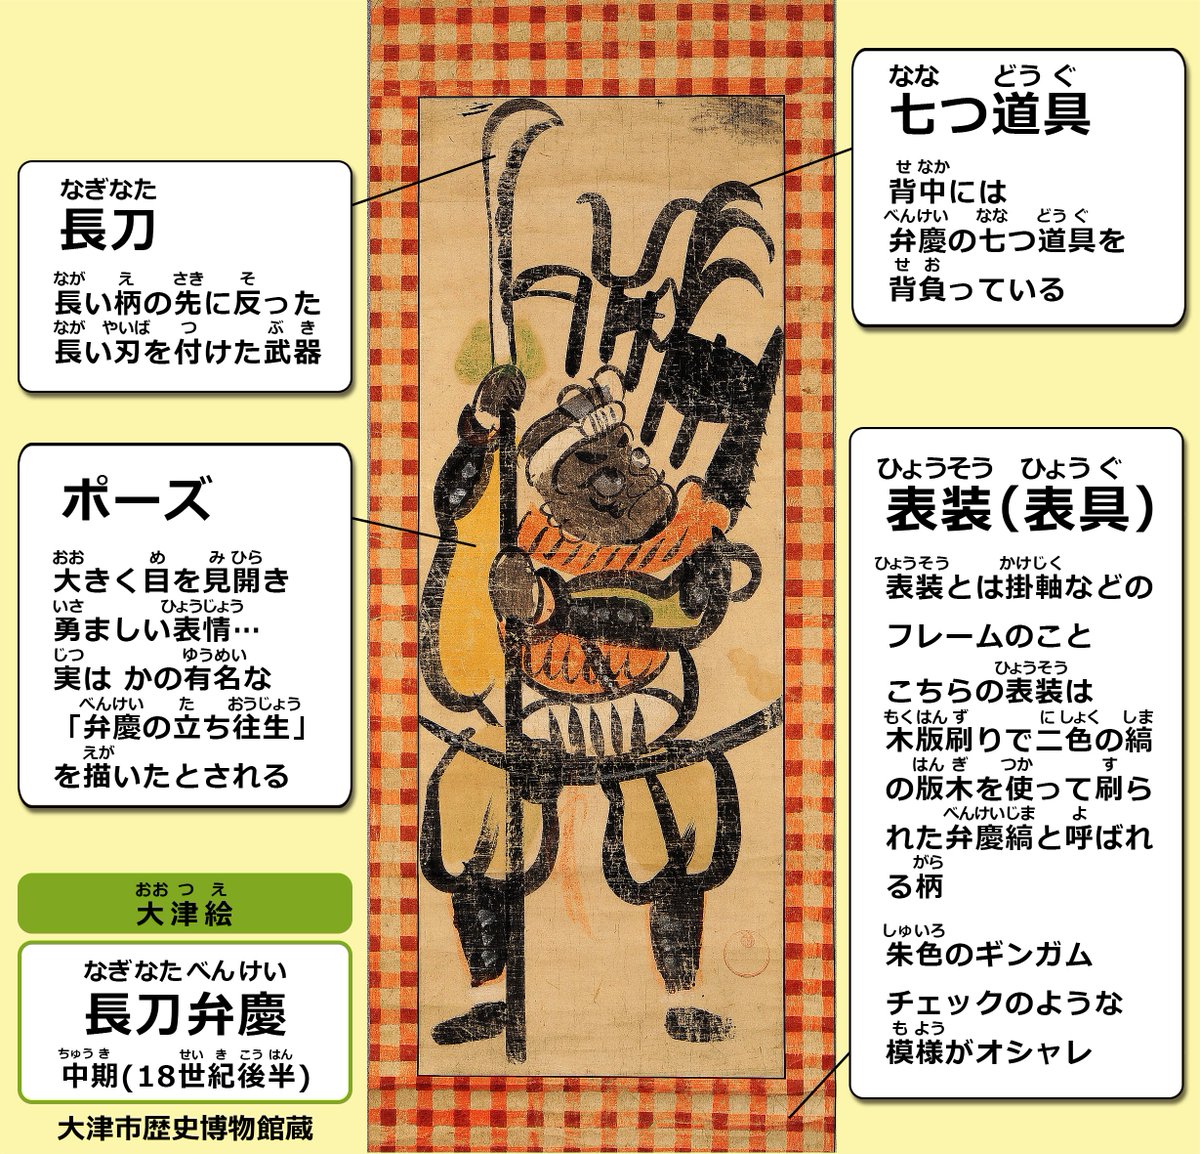 なぎなた
長刀
なが え さき そ
長い柄の先に反った
なが やいば つ ぶ き
長い刃を付けた武器
ポーズ
おお め み ひら
大きく目を見開き
いさ ひょうじょう
勇ましい表情…
じつ ゆうめい
実は かの有名な
べんけい た おうじょう
「弁慶の立ち往生」
えが
を描いたとされる
おお つ え
大津絵
なぎなたべんけい
長刀弁慶
ちゅう き せい き こう はん
中期(18世紀後半)
大津市歴史博物館蔵
なな どう ぐ
七つ道具
せ なか
背中には
べんけい なな どう ぐ
弁慶の七つ道具を
せ お
背負っている
ひょうそう ひょう ぐ
表装(表具)
ひょうそう かけじく
表装とは掛軸などの
フレームのこと
ひょうそう
こちらの表装は
もくはん ず に しょく しま
木版刷りで二色の縞
はん ぎ つか す
の版木を使って刷ら
べんけいじま よ
れた弁慶縞と呼ばれ
がら
る柄
しゅいろ
朱色のギンガム
チェックのような
も よう
模様がオシャレ